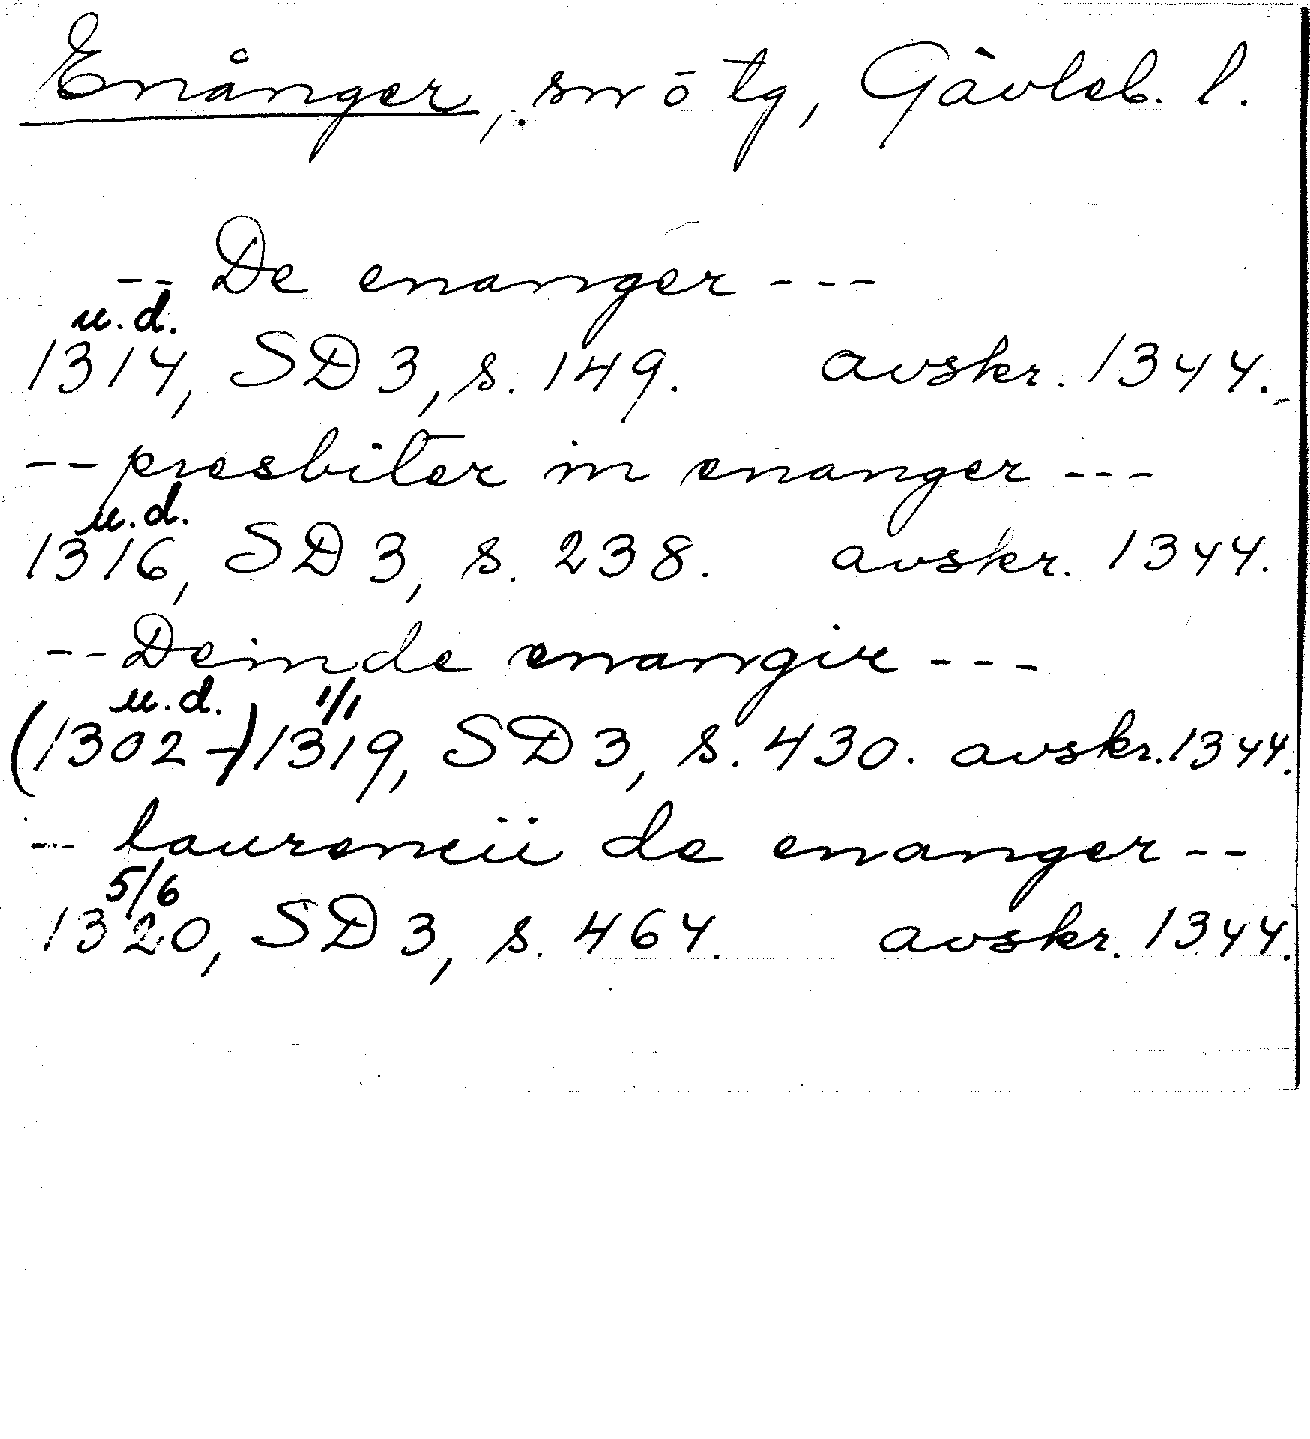 Enånger, sn ö tg, Gävleb. l.
-- De enanger ---
u.d.
1314, SD 3, s. 149. avskr. 1344.
-- presbiter in enanger ---
u.d.
1316, SD 3, s. 238. avskr. 1344.
-- Deinde enangir ---
u.d. 1/1
(1302-)1319, SD 3, s. 430. avskr. 1344.
-- laurencii de enanger --
5/6
1320, SD 3, s. 464. avskr. 1344.